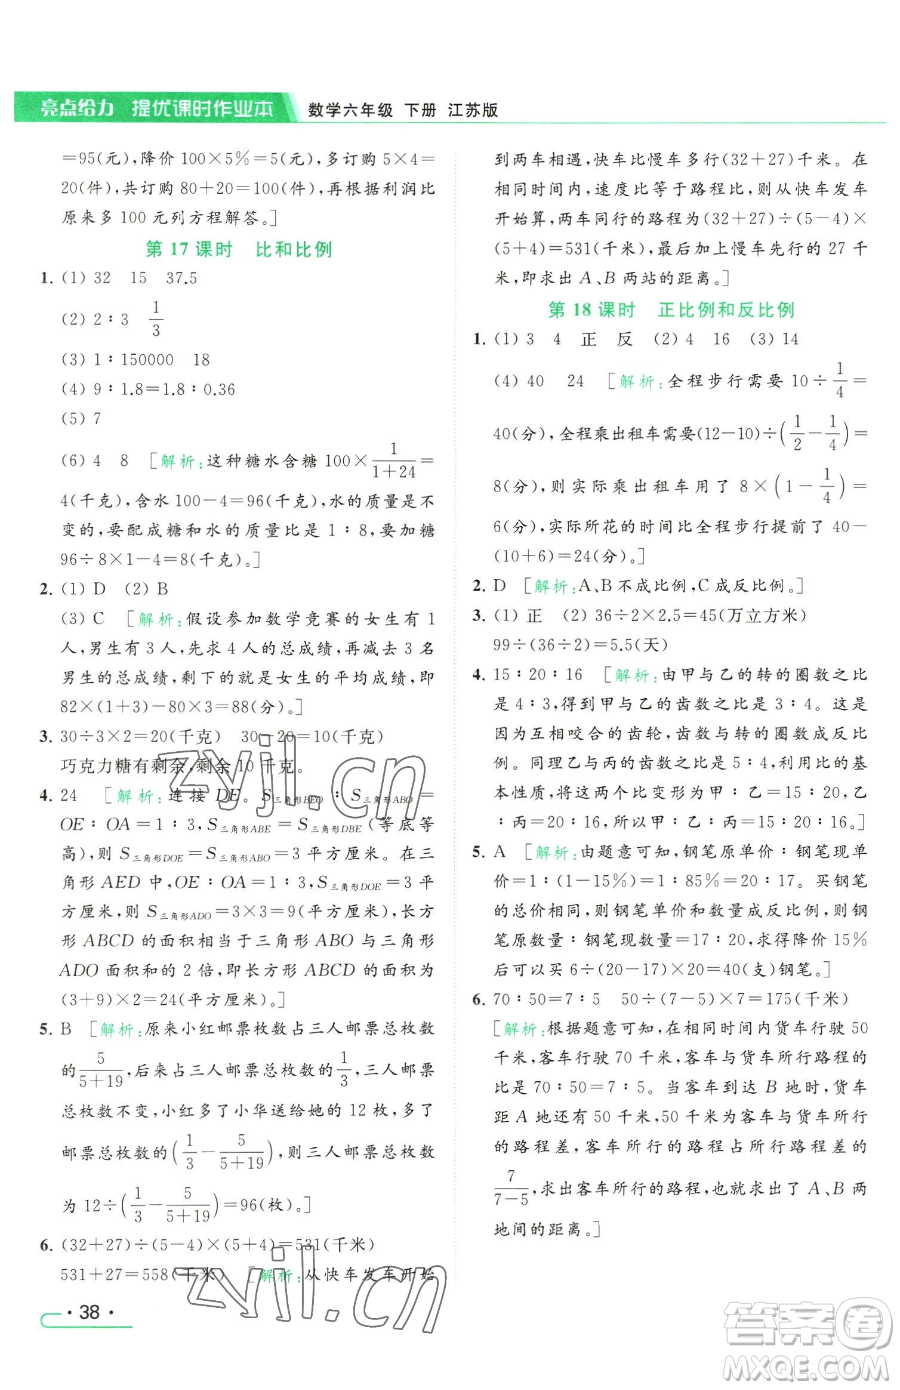 亮点给力 提优课时作业本 数学六年级 下册 江苏版
=95(元),降价 100×5%=5(元),多订购 5×4=
20(件),共订购 80+20=100(件),再根据利润比
原来多 100 元列方程解答。]
第 17 课时 比和比例
1. (1) 32 15 37.5
(2) 2∶3 1/3
(3) 1∶150000 18
(4) 9∶1.8=1.8∶0.36
(5) 7
(6) 4 8 [解析:这种糖水含糖 100×1/(1+24)=
4(千克),含水 100-4=96(千克),水的质量是不
变的,要配成糖和水的质量比是 1∶8,要加糖
96÷8×1-4=8(千克)。]
2. (1) D (2) B
(3) C [解析:假设参加数学竞赛的女生有 1
人,男生有 3 人,先求出 4 人的总成绩,再求出
男生的总成绩,剩下的就是女生的平均成绩,即
82×(1+3)-80×3=88(分)。]
3. 30÷3×2=20(千克) 30-20=10(千克)
巧克力糖有剩余,剩余 10 千克。
4. 24 [解析:连接 DE。S三角形BEO∶S三角形ABO=
OE∶OA=1∶3,S三角形ABE=S三角形DBE(等底等
高),则 S三角形DOE=S三角形ABO=3 平方厘米。在三
角形 AED 中,OE∶OA=1∶3,S三角形DOE=3 平方
厘米,则 S三角形ADO=3×3=9(平方厘米),长方
形 ABCD 的面积相当于三角形 ABO 与三角形
ADO 面积和的 2 倍,即长方形 ABCD 的面积为
(3+9)×2=24(平方厘米)。]
5. B [解析:原来小红邮票枚数占三人邮票总枚数
的 5/(5+19),后来占三人邮票总枚数的 1/3,三人邮票
总枚数不变,小红多了小华送给她的 12 枚,多了
总枚数的(1/3-5/(5+19)),则三人邮票总枚数
为 12÷(1/3-5/(5+19))=96(枚)。]
6. (32+27)÷(5-4)×(5+4)=531(千米)
531+27=558(千米) [解析:从快车发车开始
到两车相遇,快车比慢车多行(32+27)千米。在
相同时间内,速度比等于路程比,则从快车发车
开始算,两车同行的路程为(32+27)÷(5-4)×
(5+4)=531(千米),最后加上慢车先行的 27 千
米,即求出 A、B 两站的距离。]
第 18 课时 正比例和反比例
1. (1) 3 4 正 反 (2) 4 16 (3) 14
(4) 40 24 [解析:全程步行需要 10÷1/4=
40(分),全程乘出租车需要(12-10)÷(1/2-1/4)=
8(分),则实际乘出租车用了 8×(1-1/4)=
6(分),实际所花的时间比全程步行提前了 40-
(10+6)=24(分)。]
2. D [解析:A、B 不成比例,C 成反比例。]
3. (1) 正 (2) 36÷2×2.5=45(万立方米)
99÷(36÷2)=5.5(天)
4. 15∶20∶16 [解析:由甲与乙的转的圈数之比
是 4∶3,得到甲与乙的齿数之比是 3∶4。这是
因为互相咬合的齿轮,齿数与转的圈数成反比
例。同理乙与丙的齿数之比是 5∶4,由比的基
本性质,把这两个比变形为甲∶乙=15∶20,
乙∶丙=20∶16,所以甲∶乙∶丙=15∶20∶16。]
5. A [解析:由题意可知,钢笔原单价∶钢笔现单
价=1∶(1-15%)=1∶85%=20∶17。买钢笔
的总价相同,则钢笔单价和数量成反比例,则钢
笔原数量∶钢笔现数量=17∶20,求得降价 15%
后可以买 6÷(20-17)×20=40(支)钢笔。]
6. 70∶50=7∶5 50÷(7-5)×7=175(千米)
[解析:根据题意可知,在相同时间内货车行驶 50
千米,客车行驶 70 千米,客车与货车所行路程的
比是 70∶50=7∶5。当客车到达 B 地时,货车
距 A 地还有 50 千米,50 千米是客车与货车所行
的路程差,客车所行的路程是客车与货车路程差的
7/(7-5),求出客车所行的路程,也就求出了 A、B 两
地间的距离。]
·38·
zyjl.cn
zyjl.cn
答案圈
MXQE.COM